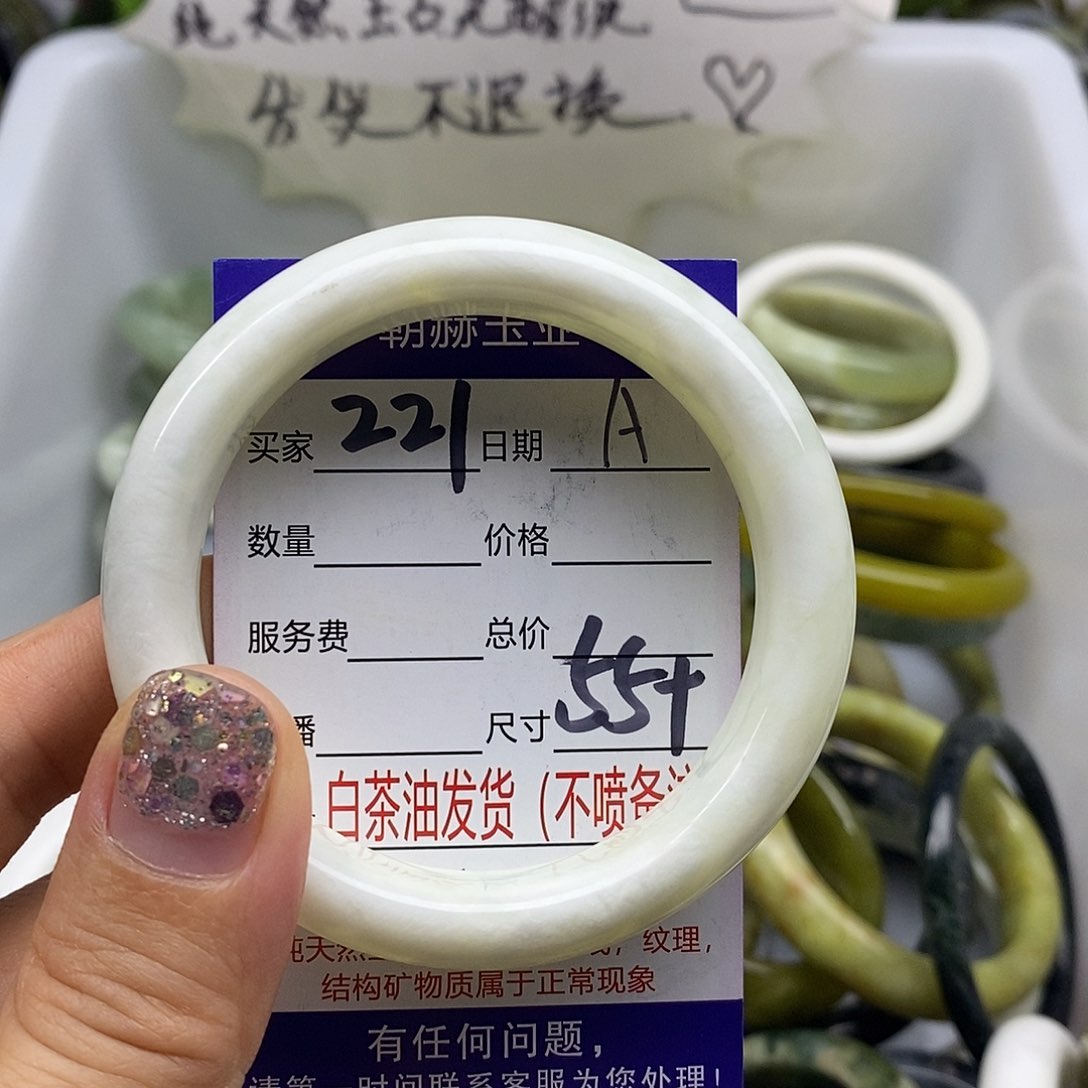 纯天然玉石无
售後不退换
朝赫玉业
买家 221 日期 A
数量 价格
服务费 总价
播 尺寸 55+
白茶油发货（不喷备注
纯天然 纹理，
结构矿物质属于正常现象
有任何问题，
请第一时间联系客服为您处理！